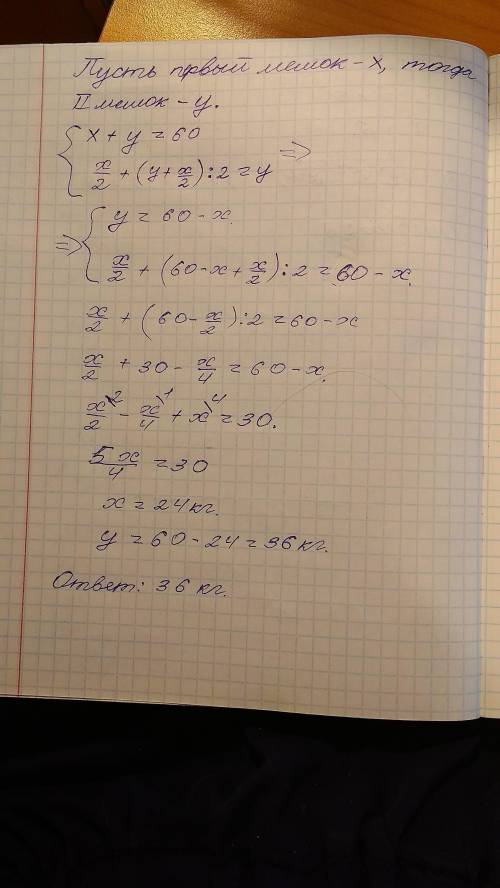 Пусть првый мешок – x, тогда
II мешок – y.
{ x + y = 60
x/2 + (y + x/2) : 2 = y =>
=> { y = 60 – x.
x/2 + (60 – x + x/2) : 2 = 60 – x.
x/2 + (60 – x/2) : 2 = 60 – x
x/2 + 30 – x/4 = 60 – x.
x\2/2 – x\1/4 + x\4 = 30.
5x/4 = 30
x = 24 кг.
y = 60 – 24 = 36 кг.
Ответ: 36 кг.